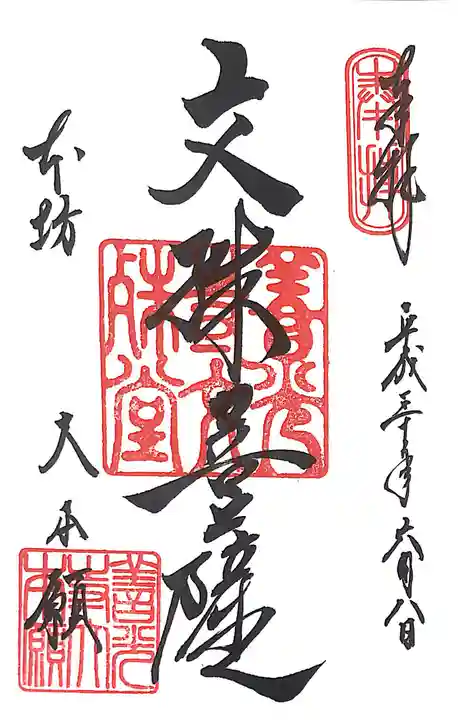 奉拝
平成三十年六月八日
文殊菩薩
本坊
大本願